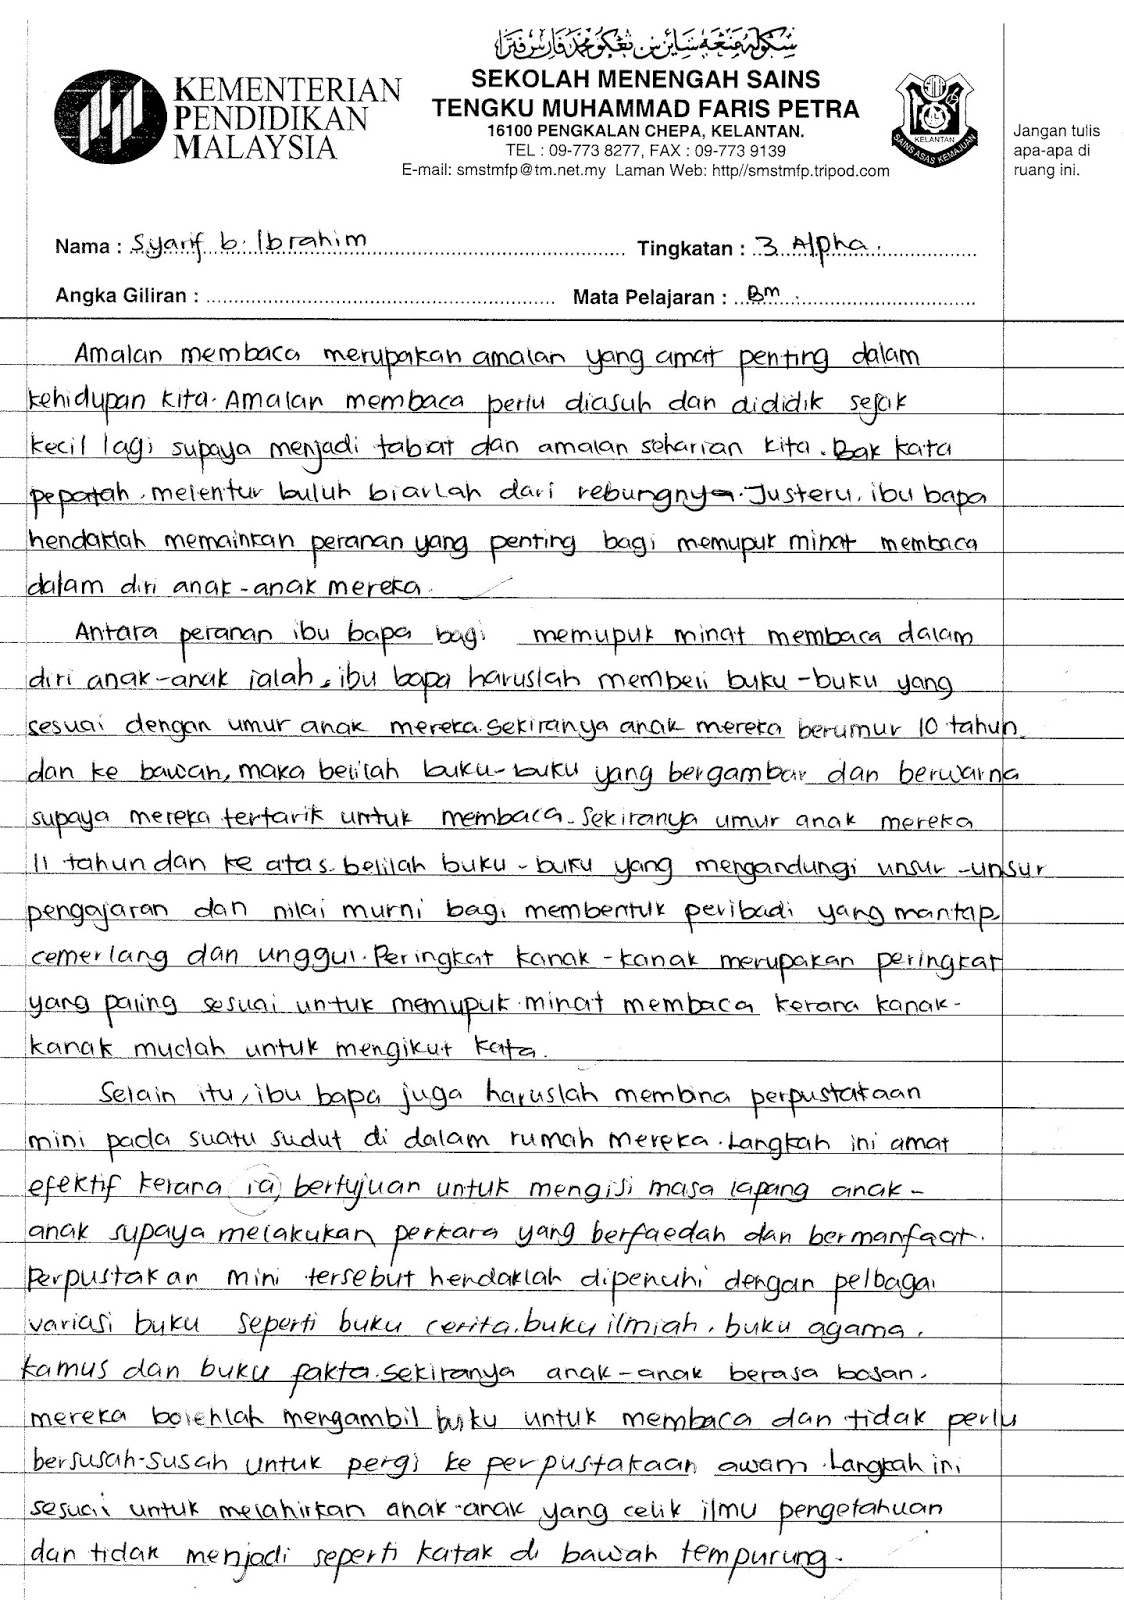 KEMENTERIAN
PENDIDIKAN
MALAYSIA
SEKOLAH MENENGAH SAINS
TENGKU MUHAMMAD FARIS PETRA
16100 PENGKALAN CHEPA, KELANTAN.
TEL : 09-773 8277, FAX : 09-773 9139
E-mail: smstmfp@tm.net.my Laman Web: http//smstmfp.tripod.com
KELANTAN
SAINS ASAS KEMAJUAN
Jangan tulis
apa-apa di
ruang ini.
Nama : Syarif b. Ibrahim Tingkatan : 3 Alpha.
Angka Giliran : Mata Pelajaran : BM
Amalan membaca merupakan amalan yang amat penting dalam
kehidupan kita. Amalan membaca perlu diasuh dan dididik sejak
kecil lagi supaya menjadi tabiat dan amalan seharian kita. Bak kata
pepatah, melentur buluh biarlah dari rebungnya. Justeru, ibu bapa
hendaklah memainkan peranan yang penting bagi memupuk minat membaca
dalam diri anak-anak mereka.
Antara peranan ibu bapa bagi memupuk minat membaca dalam
diri anak-anak ialah, ibu bapa haruslah membeli buku-buku yang
sesuai dengan umur anak mereka. Sekiranya anak mereka berumur 10 tahun
dan ke bawah, maka belilah buku-buku yang bergambar dan berwarna
supaya mereka tertarik untuk membaca. Sekiranya umur anak mereka
11 tahun dan ke atas, belilah buku-buku yang mengandungi unsur-unsur
pengajaran dan nilai murni bagi membentuk peribadi yang mantap,
cemerlang dan unggul. Peringkat kanak-kanak merupakan peringkat
yang paling sesuai untuk memupuk minat membaca kerana kanak-
kanak mudah untuk mengikut kata.
Selain itu, ibu bapa juga haruslah membina perpustakaan
mini pada suatu sudut di dalam rumah mereka. Langkah ini amat
efektif kerana ia bertujuan untuk mengisi masa lapang anak-
anak supaya melakukan perkara yang berfaedah dan bermanfaat.
Perpustakan mini tersebut hendaklah dipenuhi dengan pelbagai
variasi buku seperti buku cerita, buku ilmiah, buku agama,
kamus dan buku fakta. Sekiranya anak-anak berasa bosan,
mereka bolehlah mengambil buku untuk membaca dan tidak perlu
bersusah-susah untuk pergi ke perpustakaan awam. Langkah ini
sesuai untuk melahirkan anak-anak yang celik ilmu pengetahuan
dan tidak menjadi seperti katak di bawah tempurung.